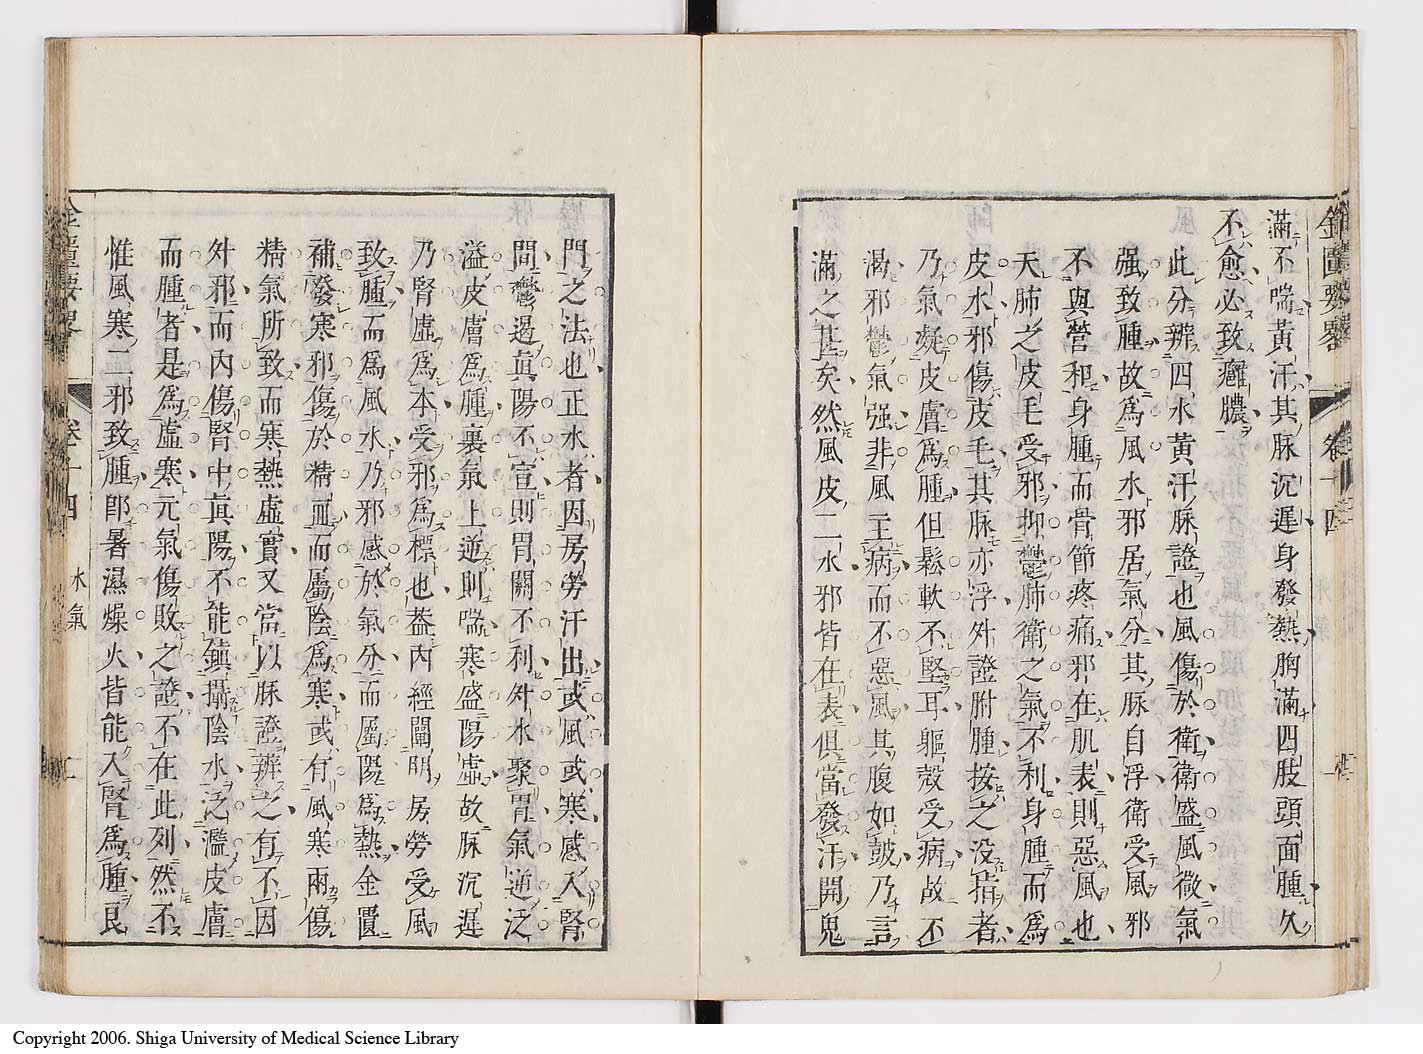 金匱要畧 卷十四 水氣
滿不喘黃汗其脉沉遲身發熱胸滿四肢頭面腫久
不愈必致癰膿
此分辨四水黃汗脉證也風傷於衛衛盛風微氣
强致腫故爲風水邪居氣分其脉自浮衛受風邪
不與營和身腫而骨節疼痛邪在肌表則惡風也
天肺之皮毛受邪抑鬱肺衛之氣不利身腫而爲
皮水邪傷皮毛其脉亦浮外證胕腫按之没指者
乃氣凝皮膚爲腫但鬆軟不堅耳軀殼受病故不
渴邪鬱氣强非風主病而不惡風其腹如皷乃言
滿之甚矣然風皮二水邪皆在表俱當發汗開鬼
門之法也正水者因房勞汗出或風或寒感入腎
間鬱遏眞陽不宣則胃關不利外水聚胃氣逆泛
溢皮膚爲腫裏氣上逆則喘寒盛陽虛故脉沉遲
乃腎虛爲本受邪爲標也葢内經闡明房勞受風
致腫而爲風水乃邪感於氣分而屬陽爲熱金匱
補發寒邪傷於精血而屬陰爲寒或有風寒兩傷
精氣所致而寒熱虛實又當以脉證辨之有不因
外邪而内傷腎中眞陽不能鎮攝陰水泛濫皮膚
而腫者是爲虛寒元氣傷敗之證不在此列然不
惟風寒二邪致腫卽暑濕燥火皆能入腎爲腫艮
金匱要畧 卷十四 水氣
Copyright 2006. Shiga University of Medical Science Library